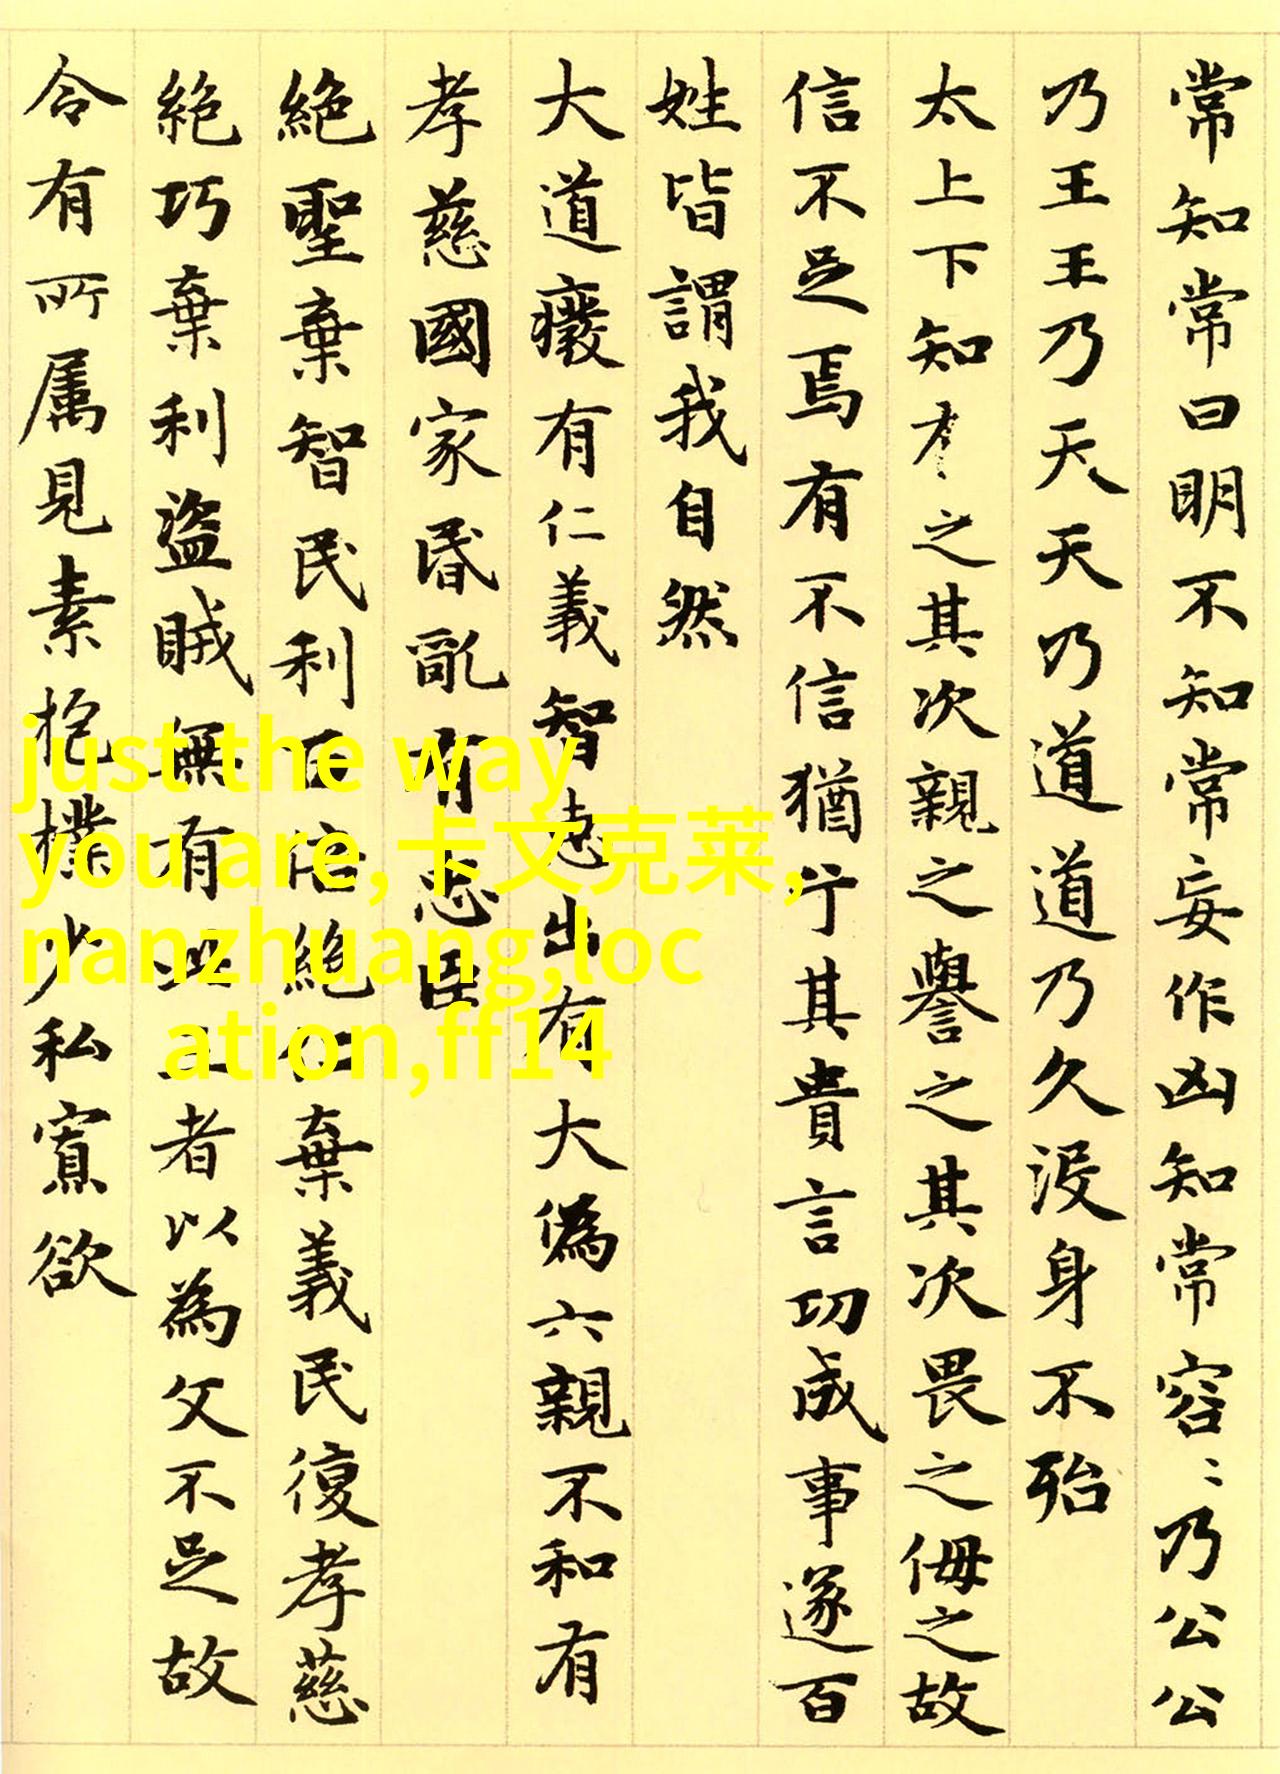 常知常曰明不知常妄作凶知常容〻乃公公
乃王王乃天天乃道道乃久没身不殆
太上下知有之其次親之譽之其次畏之侮之故
信不足焉有不信猶兮其貴言功成事遂百
姓皆謂我自然
大道癈有仁義智慧出有大偽六親不和有
孝慈國家昏亂有忠臣
絶聖棄智民利百倍絶仁棄義民復孝慈
絶巧棄利盗賊無有此三者以為文不足故
令有所属見素抱樸少私寡欲
just the way
you are,卡文克莱,
nanzhuang,loc
ation,ff14